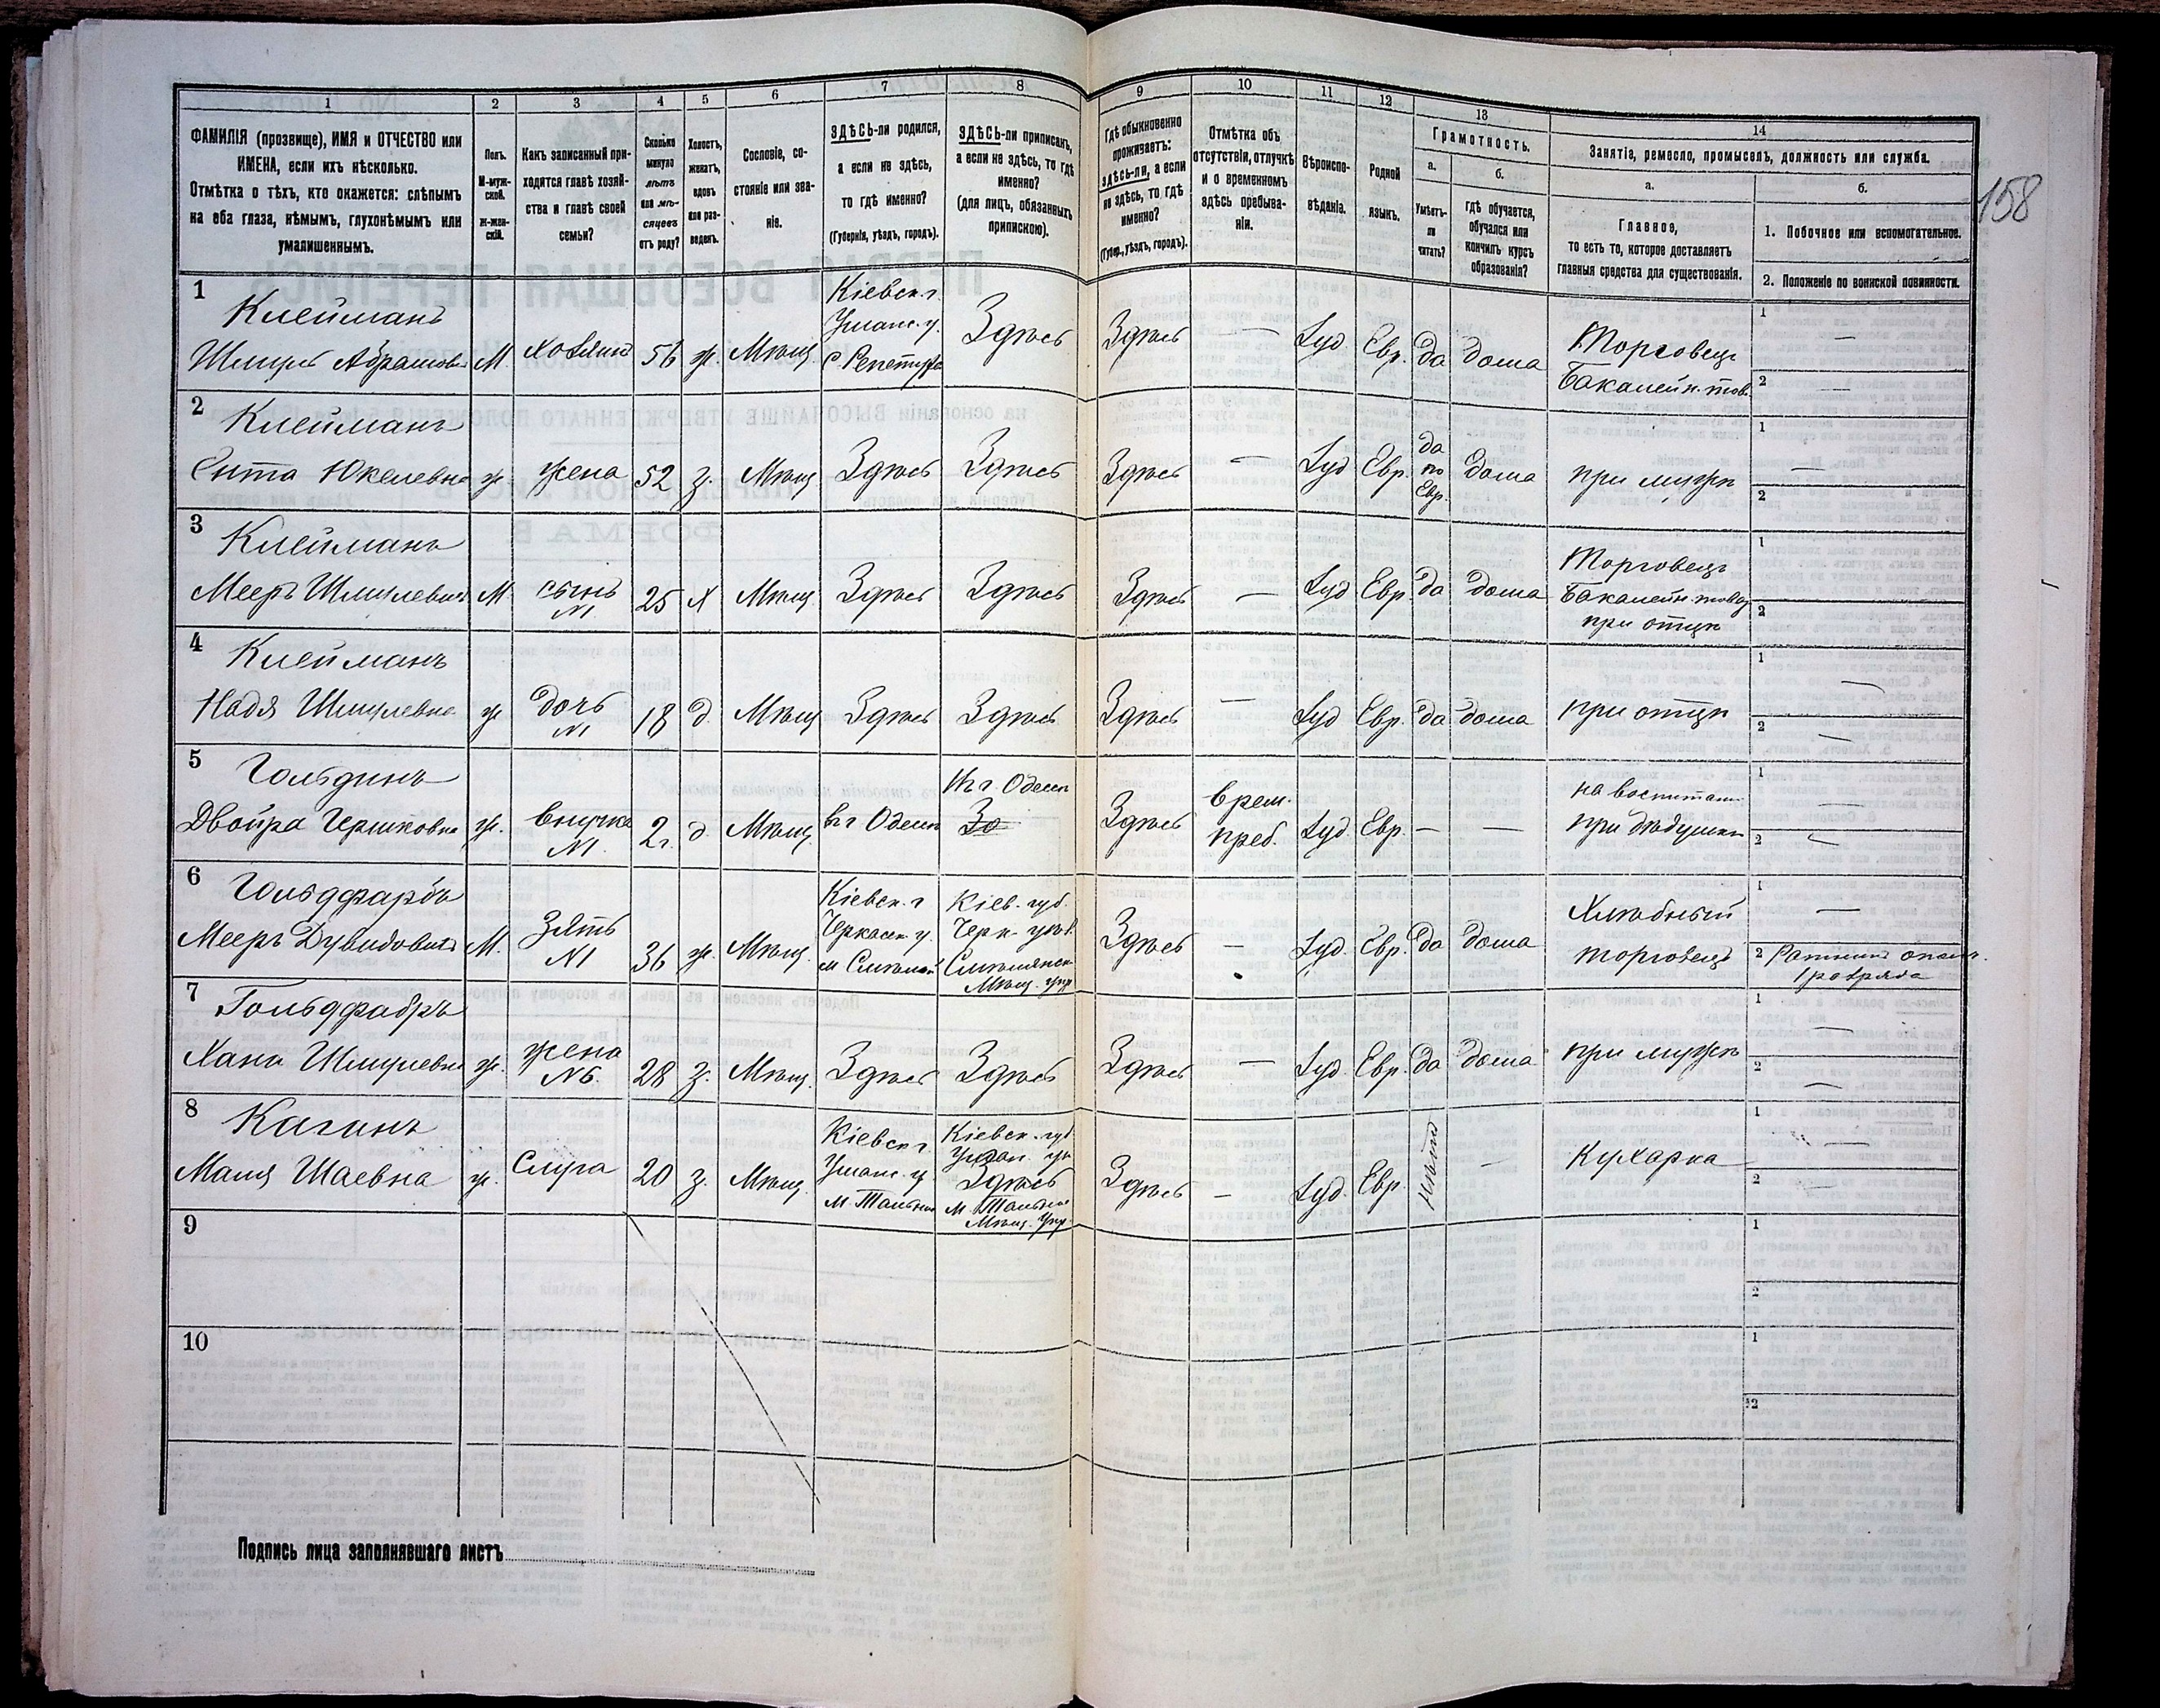 158
1 2 3 4 5 6 7 8 9 10 11 12 13 14
ФАМИЛІЯ (прозвище), ИМЯ и ОТЧЕСТВО или
ИМЕНА, если ихъ нѣсколько.
Отмѣтка о тѣхъ, кто окажется: слѣпымъ
на оба глаза, нѣмымъ, глухонѣмымъ или
умалишеннымъ.
Полъ.
М-муж-
ской.
Ж-жен-
скій.
Какъ записанный при-
ходится главѣ хозяй-
ства и главѣ своей
семьи?
Сколько
минуло
лѣтъ
или мѣ-
сяцевъ
отъ роду?
Холостъ,
женатъ,
вдовъ
или раз-
веденъ.
Сословіе, со-
стояніе или зва-
ніе.
ЗДѢСЬ-ли родился,
а если не здѣсь,
то гдѣ именно?
(Губернія, уѣздъ, городъ).
ЗДѢСЬ-ли приписанъ,
а если не здѣсь, то гдѣ
именно?
(для лицъ, обязанныхъ
припискою).
Гдѣ обыкновенно
проживаетъ:
здѣсь-ли, а если
не здѣсь, то гдѣ
именно?
(Губер., уѣздъ, городъ).
Отмѣтка объ
отсутствіи, отлучкѣ
и о временномъ
здѣсь пребыва-
ніи.
Вѣроиспо-
вѣданіе.
Родной
языкъ.
Грамотность.
а.
Умѣетъ-
ли
читать?
б.
гдѣ обучается,
обучался или
кончилъ курсъ
образованія?
Занятіе, ремесло, промыселъ, должность или служба.
а.
Главное,
то есть то, которое доставляетъ
главныя средства для существованія.
б.
1. Побочное или вспомогательное.
2. Положеніе по воинской повинности.
1
Клейманъ
Шмуль Абрамовъ М. хозяинъ 56 ж. Мѣщ.
Кіевск. г.
Уманс. у.
Здѣсь Здѣсь — Іуд. Евр. да дома
Торговецъ
Бакалейн. тов.
1 —
2 —
2
Клейманъ
Сита Юкелевна ж. жена 52 з. Мѣщ Здѣсь Здѣсь Здѣсь — Іуд Евр.
да
по
Евр.
дома при мужѣ
1 —
2
3
Клейманъ
Мееръ Шмулевичъ М. сынъ
N1
25 Х Мѣщ. Здѣсь Здѣсь Здѣсь — Іуд Евр. да дома
Торговецъ
Бакалейн. товар
при отцѣ
1
2
4
Клейманъ
Надя Шмулевна ж дочь
N1
18 д. Мѣщ Здѣсь Здѣсь Здѣсь — Іуд Евр. да дома при отцѣ
1 —
2 —
5
Гольдинъ
Двойра Гершковна ж. внучка
N1.
2г. д Мѣщ. въ г Одессѣ
Въ г. Одессѣ
Зд
Здѣсь
врем.
преб.
Іуд Евр. — —
на воспитан.
при дѣдушкѣ
1 —
2 —
6
Гольдфарбъ
Мееръ Дувидовичъ М. Зять
N1
36 ж. Мѣщ.
Кіевск. г
Черкасск. у.
м Смѣлой
Кіев. губ.
Черк. уѣз.
Смѣлянск
Мѣщ. упр
Здѣсь — Іуд. Евр. да дома
Хлѣбный
торговецъ
1 —
2 Ратникъ ополч.
1 разряда
7
Гольдфабръ
Хана Шмулевна ж. жена
N6.
28 з. Мѣщ. Здѣсь Здѣсь Здѣсь — Іуд. Евр. да дома при мужѣ
1 —
2 —
8
Каганъ
Маля Шаевна ж. Слуга 20 з. Мѣщ.
Кіевск г.
Уманс. у.
м. Тальное
Кіевск. губ
Уман. уѣ
Здѣсь
м. Тальное
Мѣщ. Упр.
Здѣсь — Іуд. Евр. нѣтъ — Кухарка
1 —
2 —
9
1
2
10
1
2
Подпись лица заполнявшаго листъ